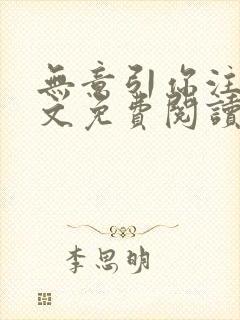 無意引你注
文免費閱讀
李思明